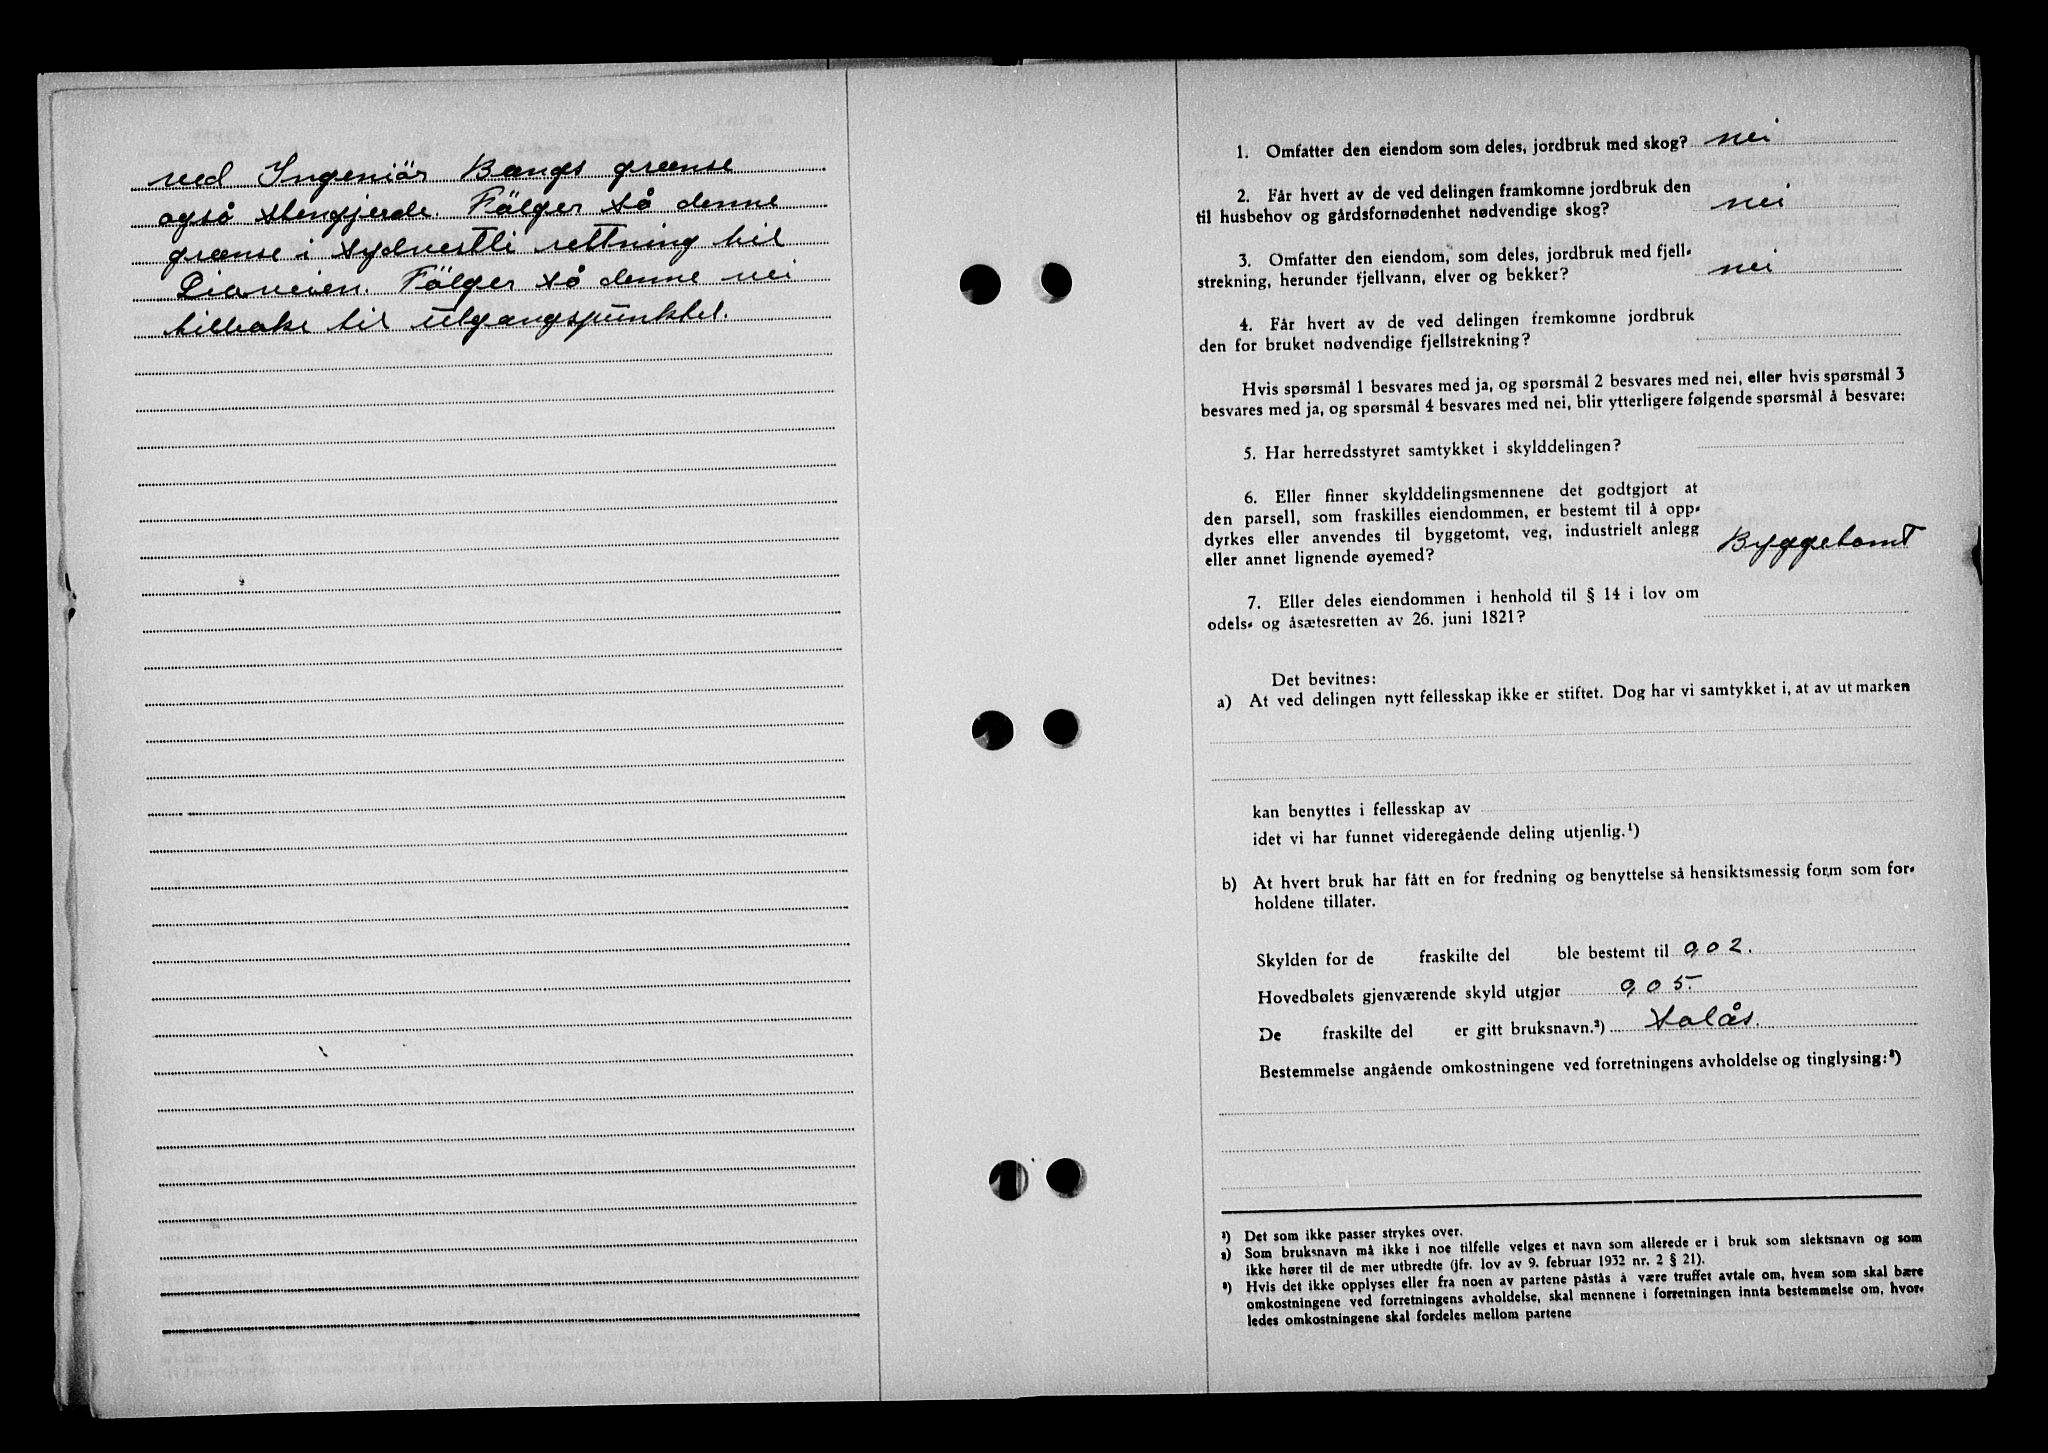 ved Ingeniör Bangs grense
også stengjerde. Fölger så denne
grense i sydvestli rettning til
Liaveien. Fölger så denne vei
tilbake til utgangspunktet.
1. Omfatter den eiendom som deles, jordbruk med skog? nei
2. Får hvert av de ved delingen framkomne jordbruk den
til husbehov og gårdsfornødenhet nødvendige skog? nei
3. Omfatter den eiendom, som deles, jordbruk med fjell-
strekning, herunder fjellvann, elver og bekker? nei
4. Får hvert av de ved delingen fremkomne jordbruk
den for bruket nødvendige fjellstrekning?
Hvis spørsmål 1 besvares med ja, og spørsmål 2 besvares med nei, eller hvis spørsmål 3
besvares med ja, og spørsmål 4 besvares med nei, blir ytterligere følgende spørsmål å besvare:
5. Har herredsstyret samtykket i skylddelingen?
6. Eller finner skylddelingsmennene det godtgjort at
den parsell, som fraskilles eiendommen, er bestemt til å opp-
dyrkes eller anvendes til byggetomt, veg, industrielt anlegg
eller annet lignende øyemed? Byggetomt
7. Eller deles eiendommen i henhold til § 14 i lov om
odels- og åsætesretten av 26. juni 1821?
Det bevitnes:
a) At ved delingen nytt fellesskap ikke er stiftet. Dog har vi samtykket i, at av utmarken
kan benyttes i fellesskap av
idet vi har funnet videregående deling utjenlig.¹)
b) At hvert bruk har fått en for fredning og benyttelse så hensiktsmessig form som for-
holdene tillater.
Skylden for de fraskilte del ble bestemt til 0,02.
Hovedbølets gjenværende skyld utgjør 0,05.
De fraskilte del er gitt bruksnavn.²) Solås.
Bestemmelse angående omkostningene ved forretningens avholdelse og tinglysing:³)
¹) Det som ikke passer strykes over.
²) Som bruksnavn må ikke i noe tilfelle velges et navn som allerede er i bruk som slektsnavn og som
ikke hører til de mer utbredte (jfr. lov av 9. februar 1932 nr. 2 § 21).
³) Hvis det ikke opplyses eller fra noen av partene påstås å være truffet avtale om, hvem som skal bære
omkostningene ved forretningens avholdelse, skal mennene i forretningen innta bestemmelse om, hvor-
ledes omkostningene skal fordeles mellom partene